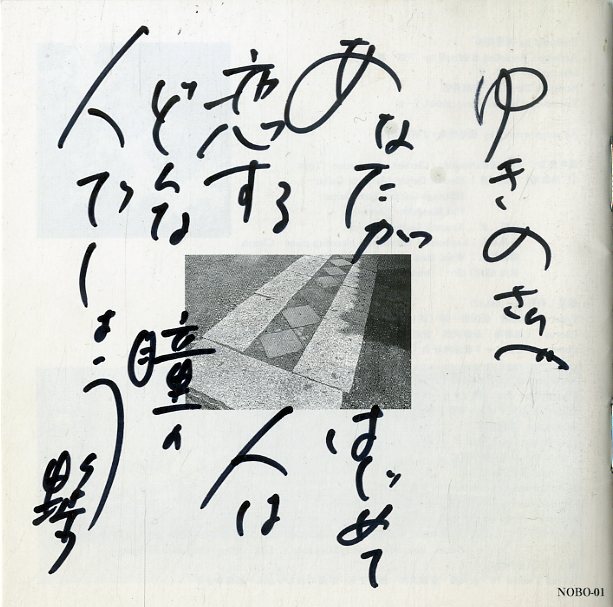 ゆきのさんへ
あなたがはじめて
恋する人は
どんな瞳の
人でしょう
NOBO-01